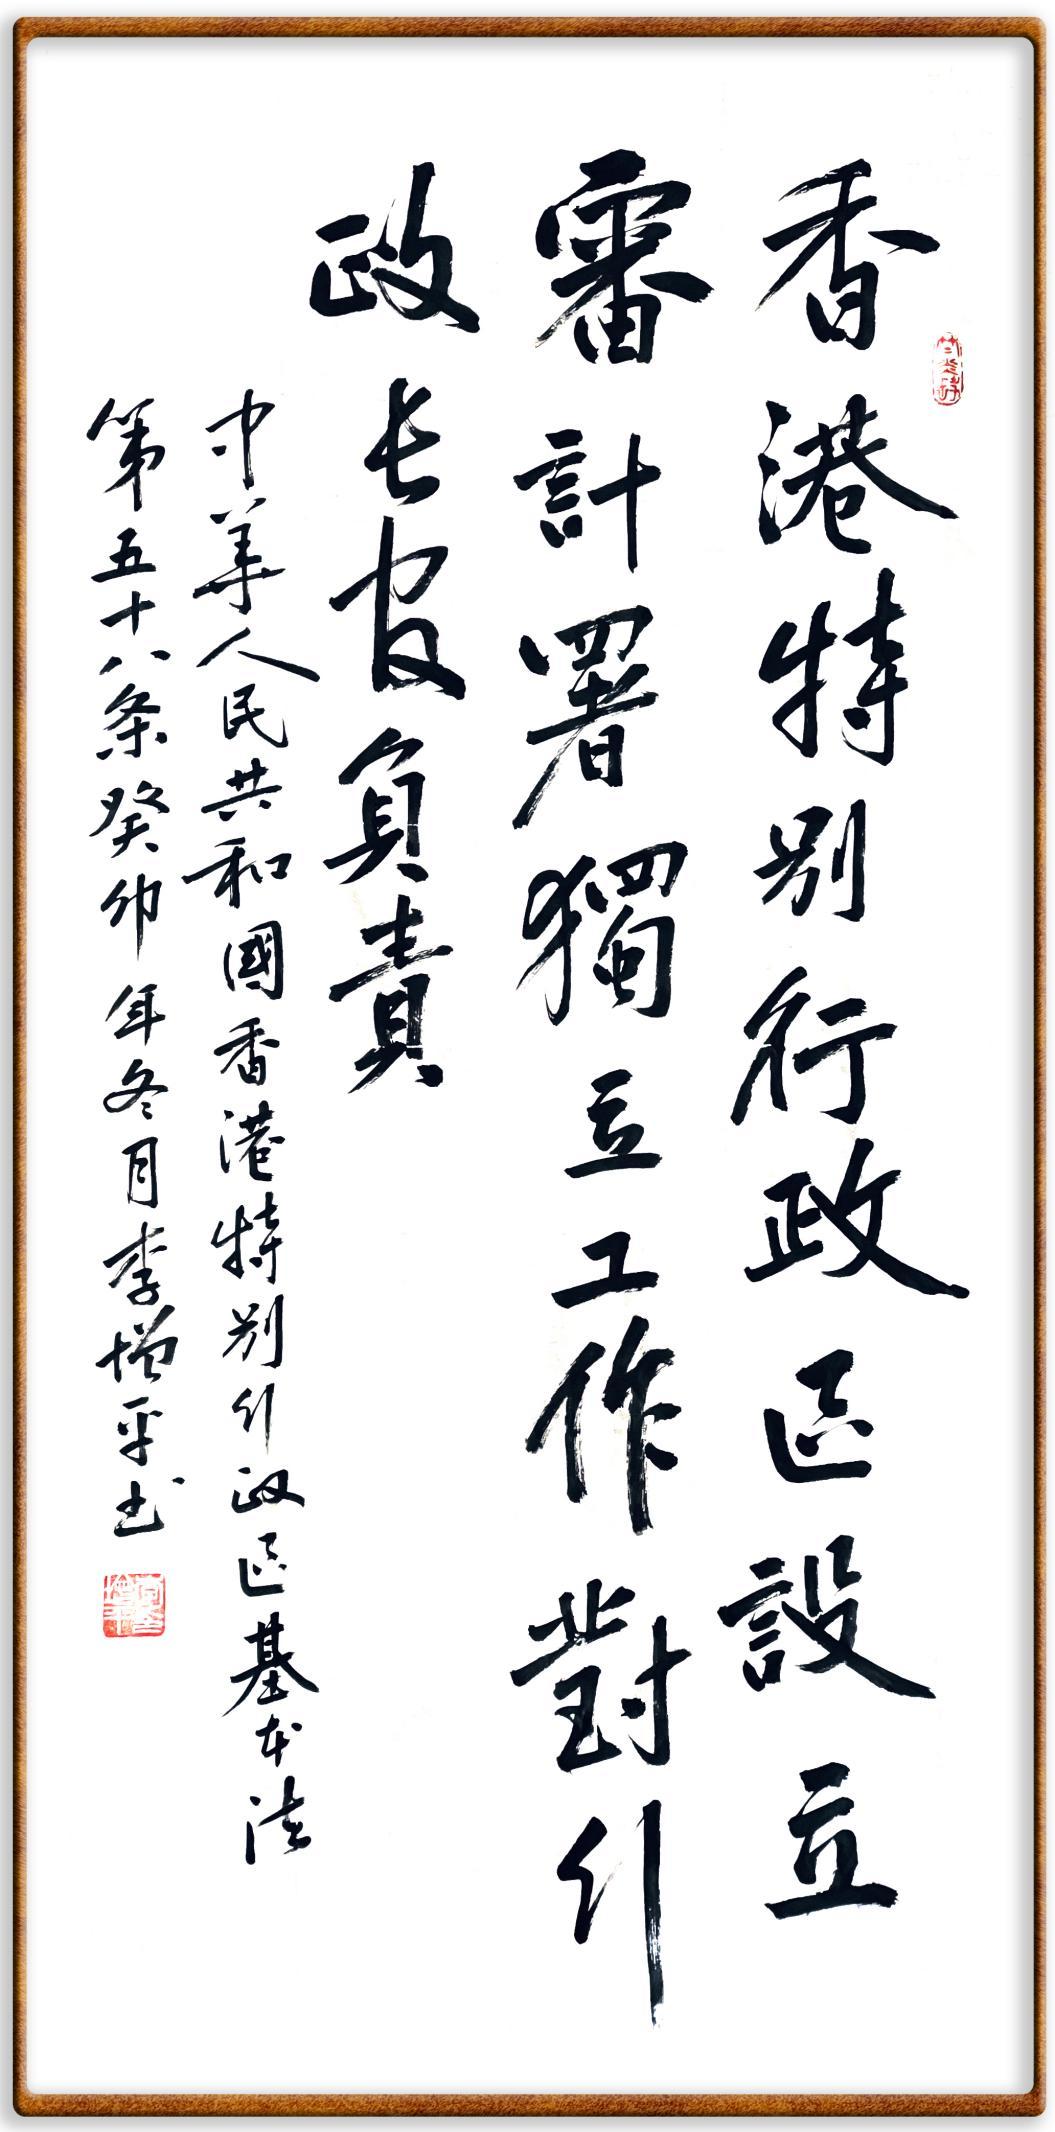 香港特别行政區設立
審計署獨立工作對行
政長官負責
中華人民共和國香港特别行政區基本法
第五十八条癸卯年冬月李增平书